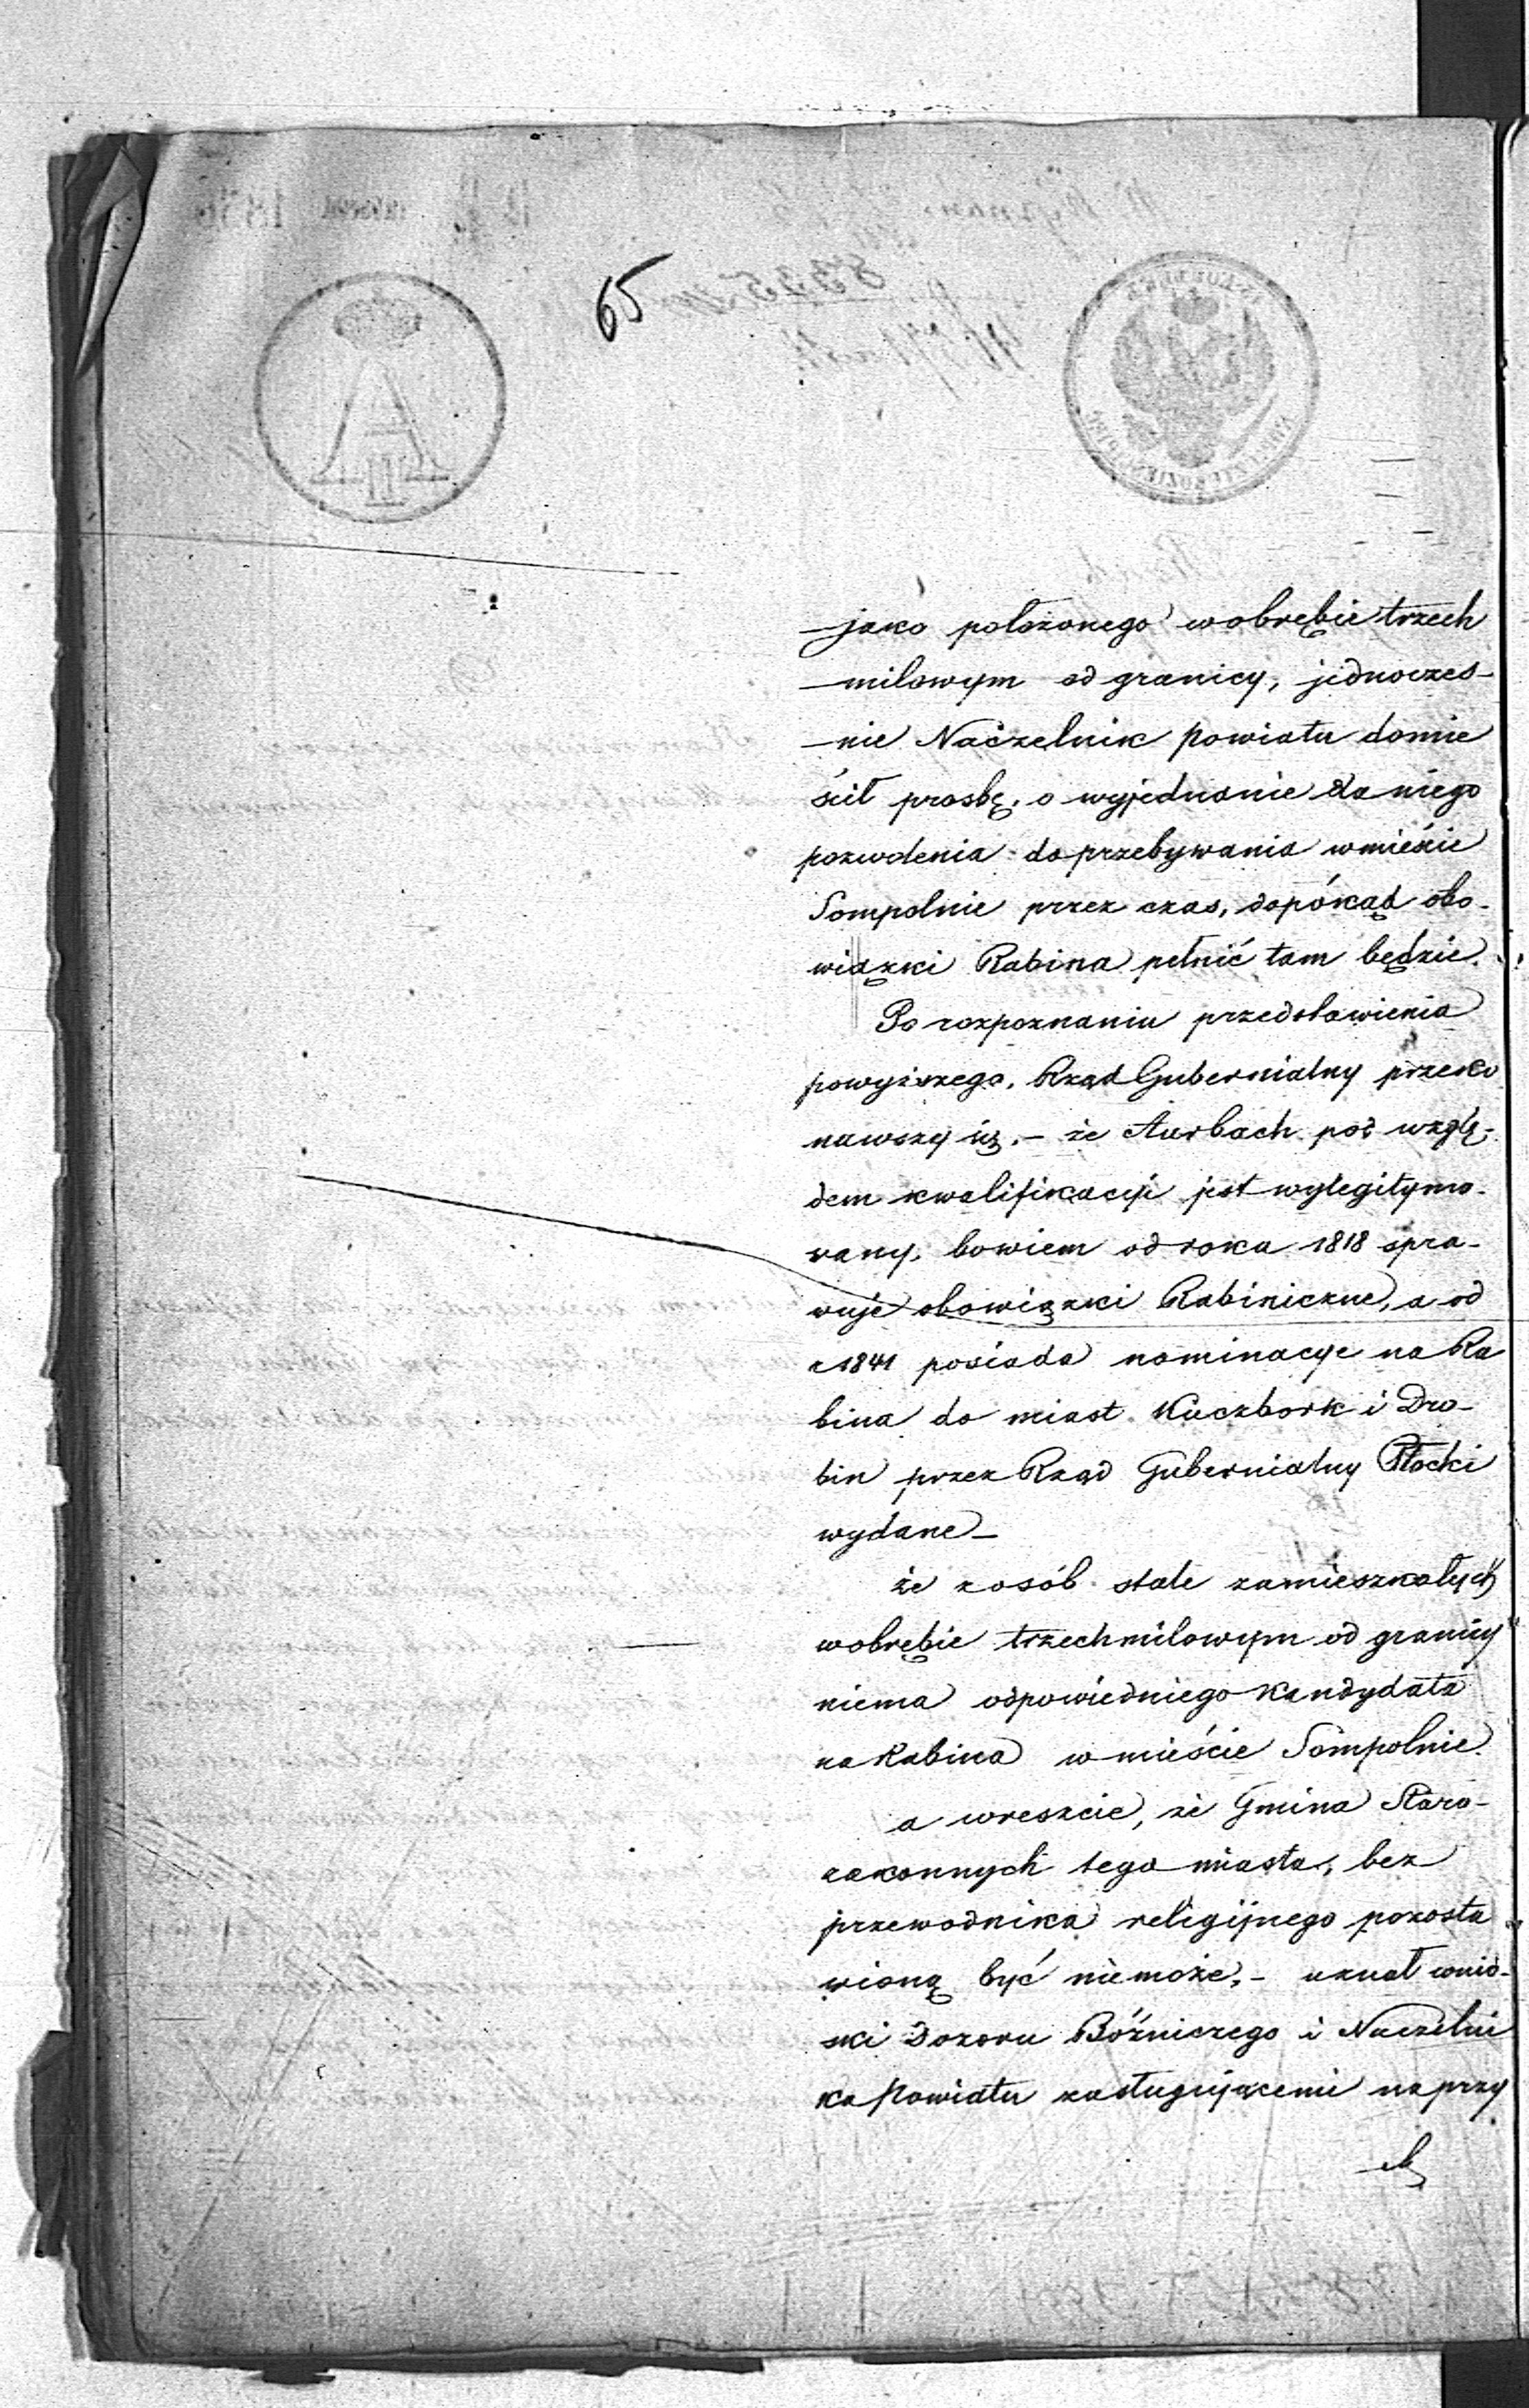 65
A II
—jako położonego wobrębie trzech
—milowym od granicy, jednoczes-
—nie Naczelnik Powiatu domie
ścił prosbę, o wyjednanie dla niego
pozwolenia do przebywania wmieście
Sompolnie przez czas, dopókąd obo-
wiązki Rabina pełnić tam będzie.
Po rozpoznaniu przedstawienia
powyższego, Rząd Gubernialny przeko
nawszy się, – że Aurbach pod wzglę-
dem kwalifikacyi jest wylegitymo-
wany, bowiem od roku 1818 spra-
wuje obowiązki Rabiniczne, a od
r 1841 posiada nominacye na Ra
bina do miast Kuczbork i Dro-
bin przez Rząd Gubernialny Płocki
wydane –
że z osób stale zamieszkałych
wobrębie trzechmilowym od granicy
niema odpowiedniego Kandydata
na Rabina w mieście Sompolnie.
a wreszcie, że Gmina Staro-
zakonnych tego miasta, bez
przewodnika religijnego pozosta
wioną być niemoże, – uznał wnio-
ski Dozoru Bóźniczego i Naczelni
ka Powiatu zasługującemi na przy